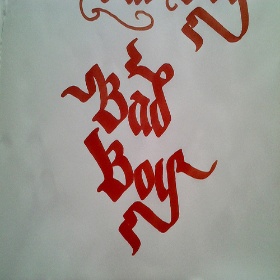 Bad
Boy